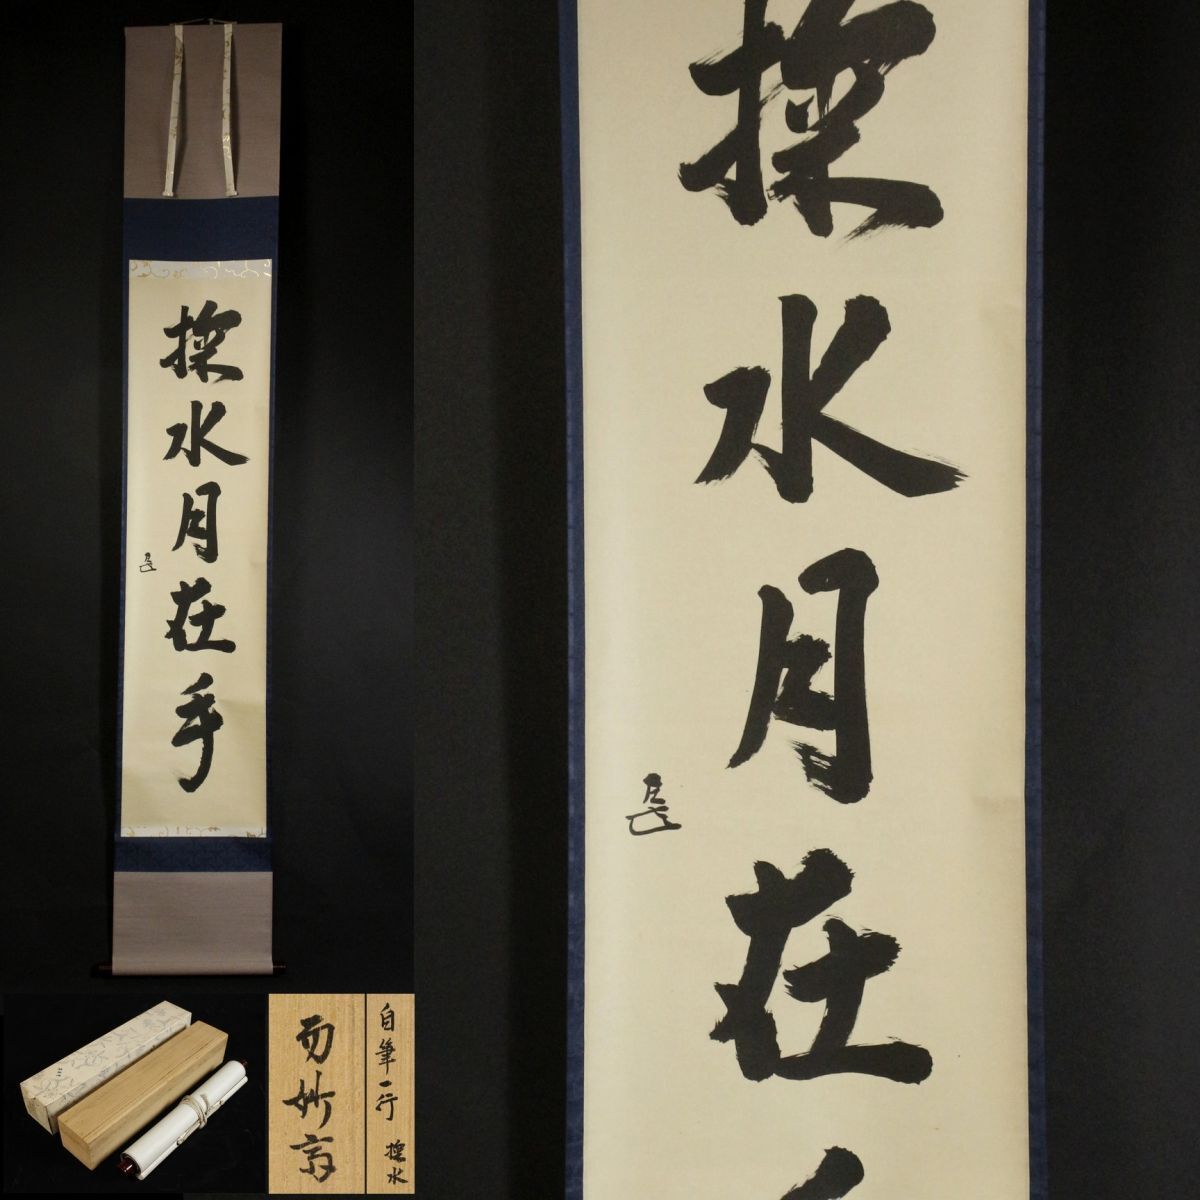 掬水月在手
而妙斎
自筆一行 掬水
掬水月在